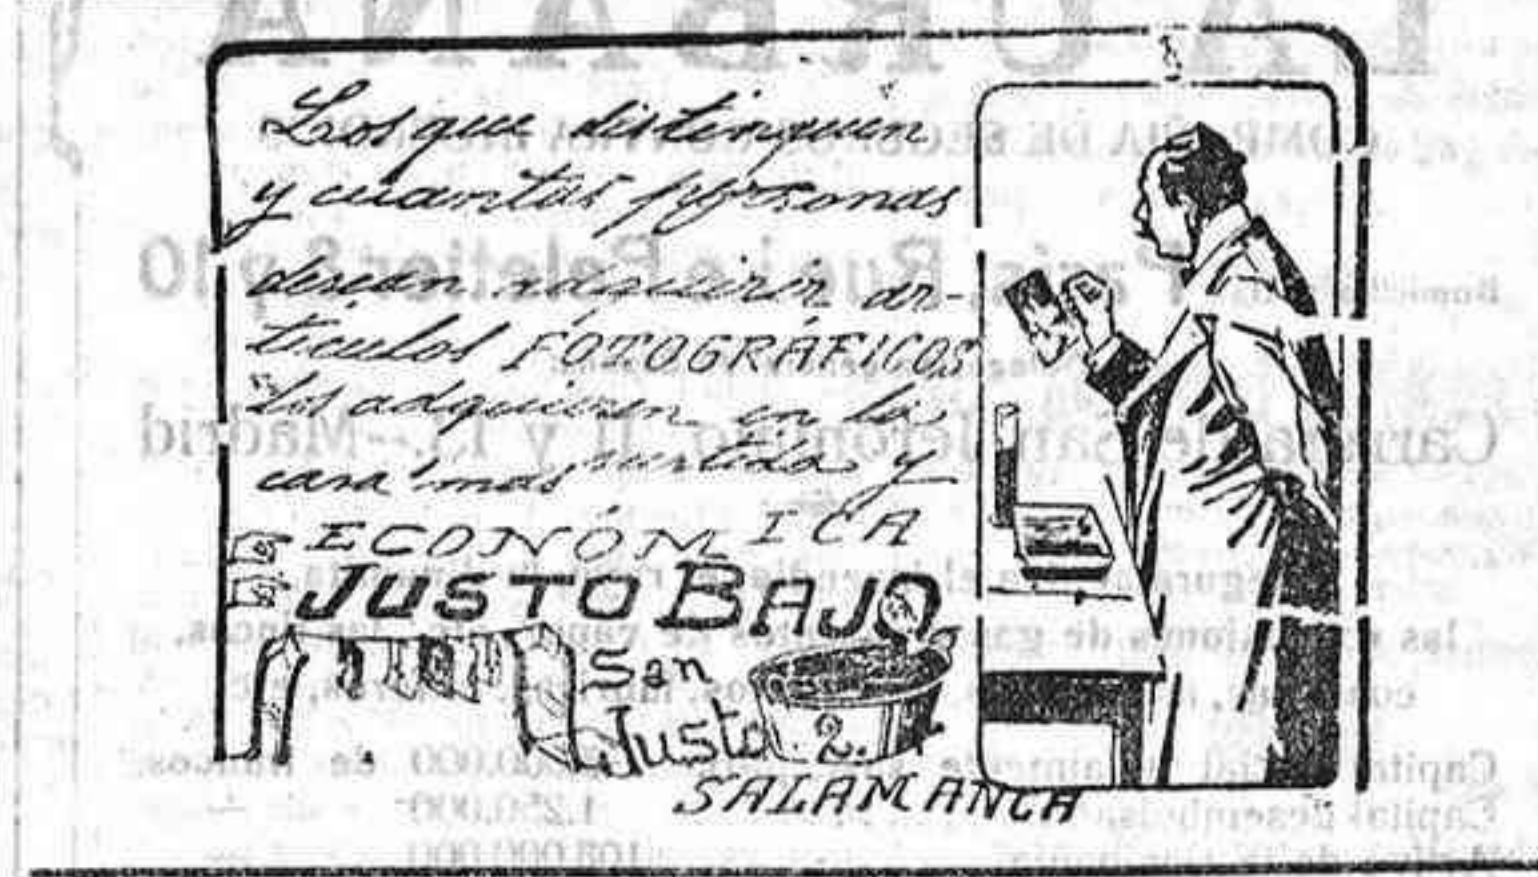 Los que distinguen
y cuantas personas
desean adquirir ar-
tículos FOTOGRÁFICOS
los adquieren en la
casa más surtida y
ECONÓMICA
JUSTO BAJO
San
Justo 2.
SALAMANCA